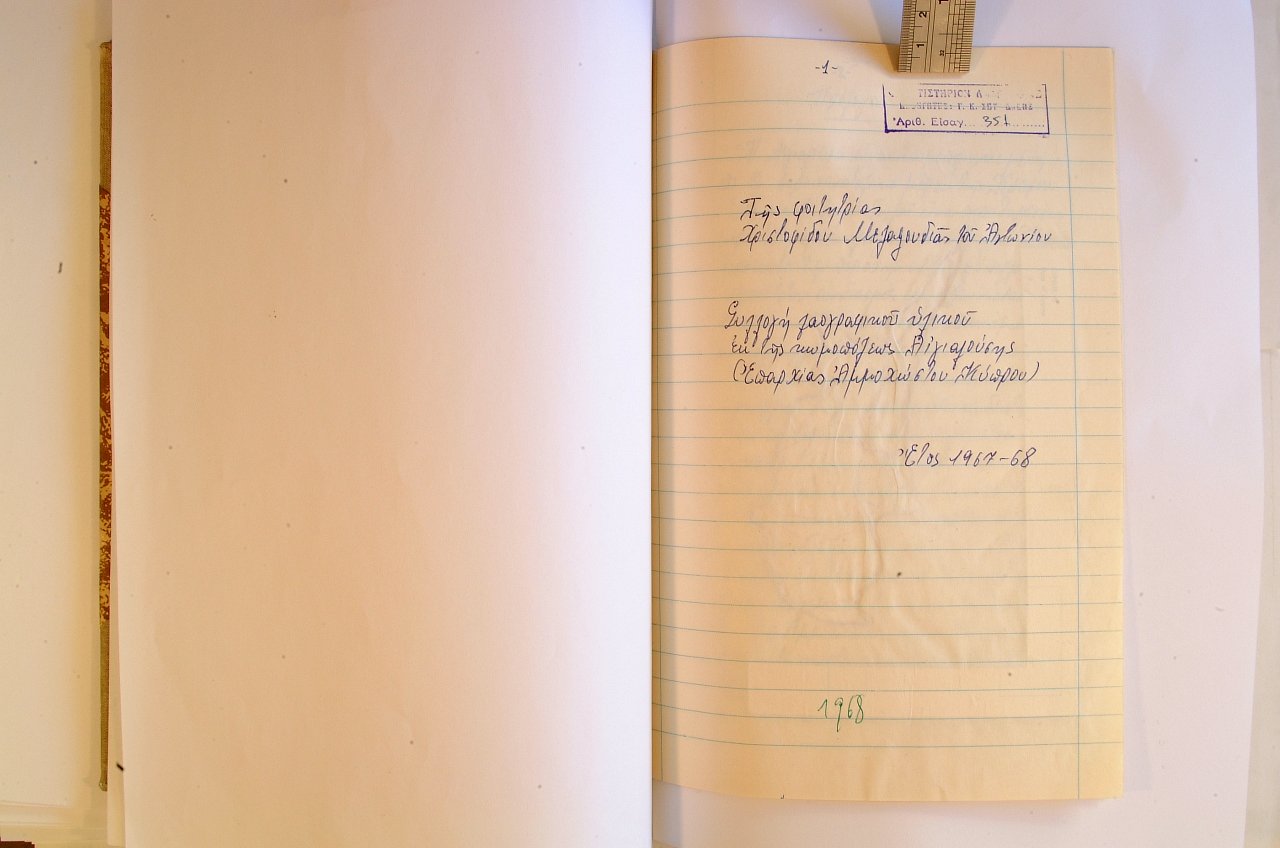 -1-
Ἀριθ. Εἰσαγ. 351
Τῆς φοιτητρίας
Χριστοφίδου Μεγαλουδιᾶς τοῦ Ἀντωνίου
Συλλογή λαογραφικοῦ ὑλικοῦ
ἐκ τῆς κωμοπόλεως Αἰγιαλούσης
(Ἐπαρχίας Ἀμμοχώστου Κύπρου)
Ἔτος 1967-68
1968